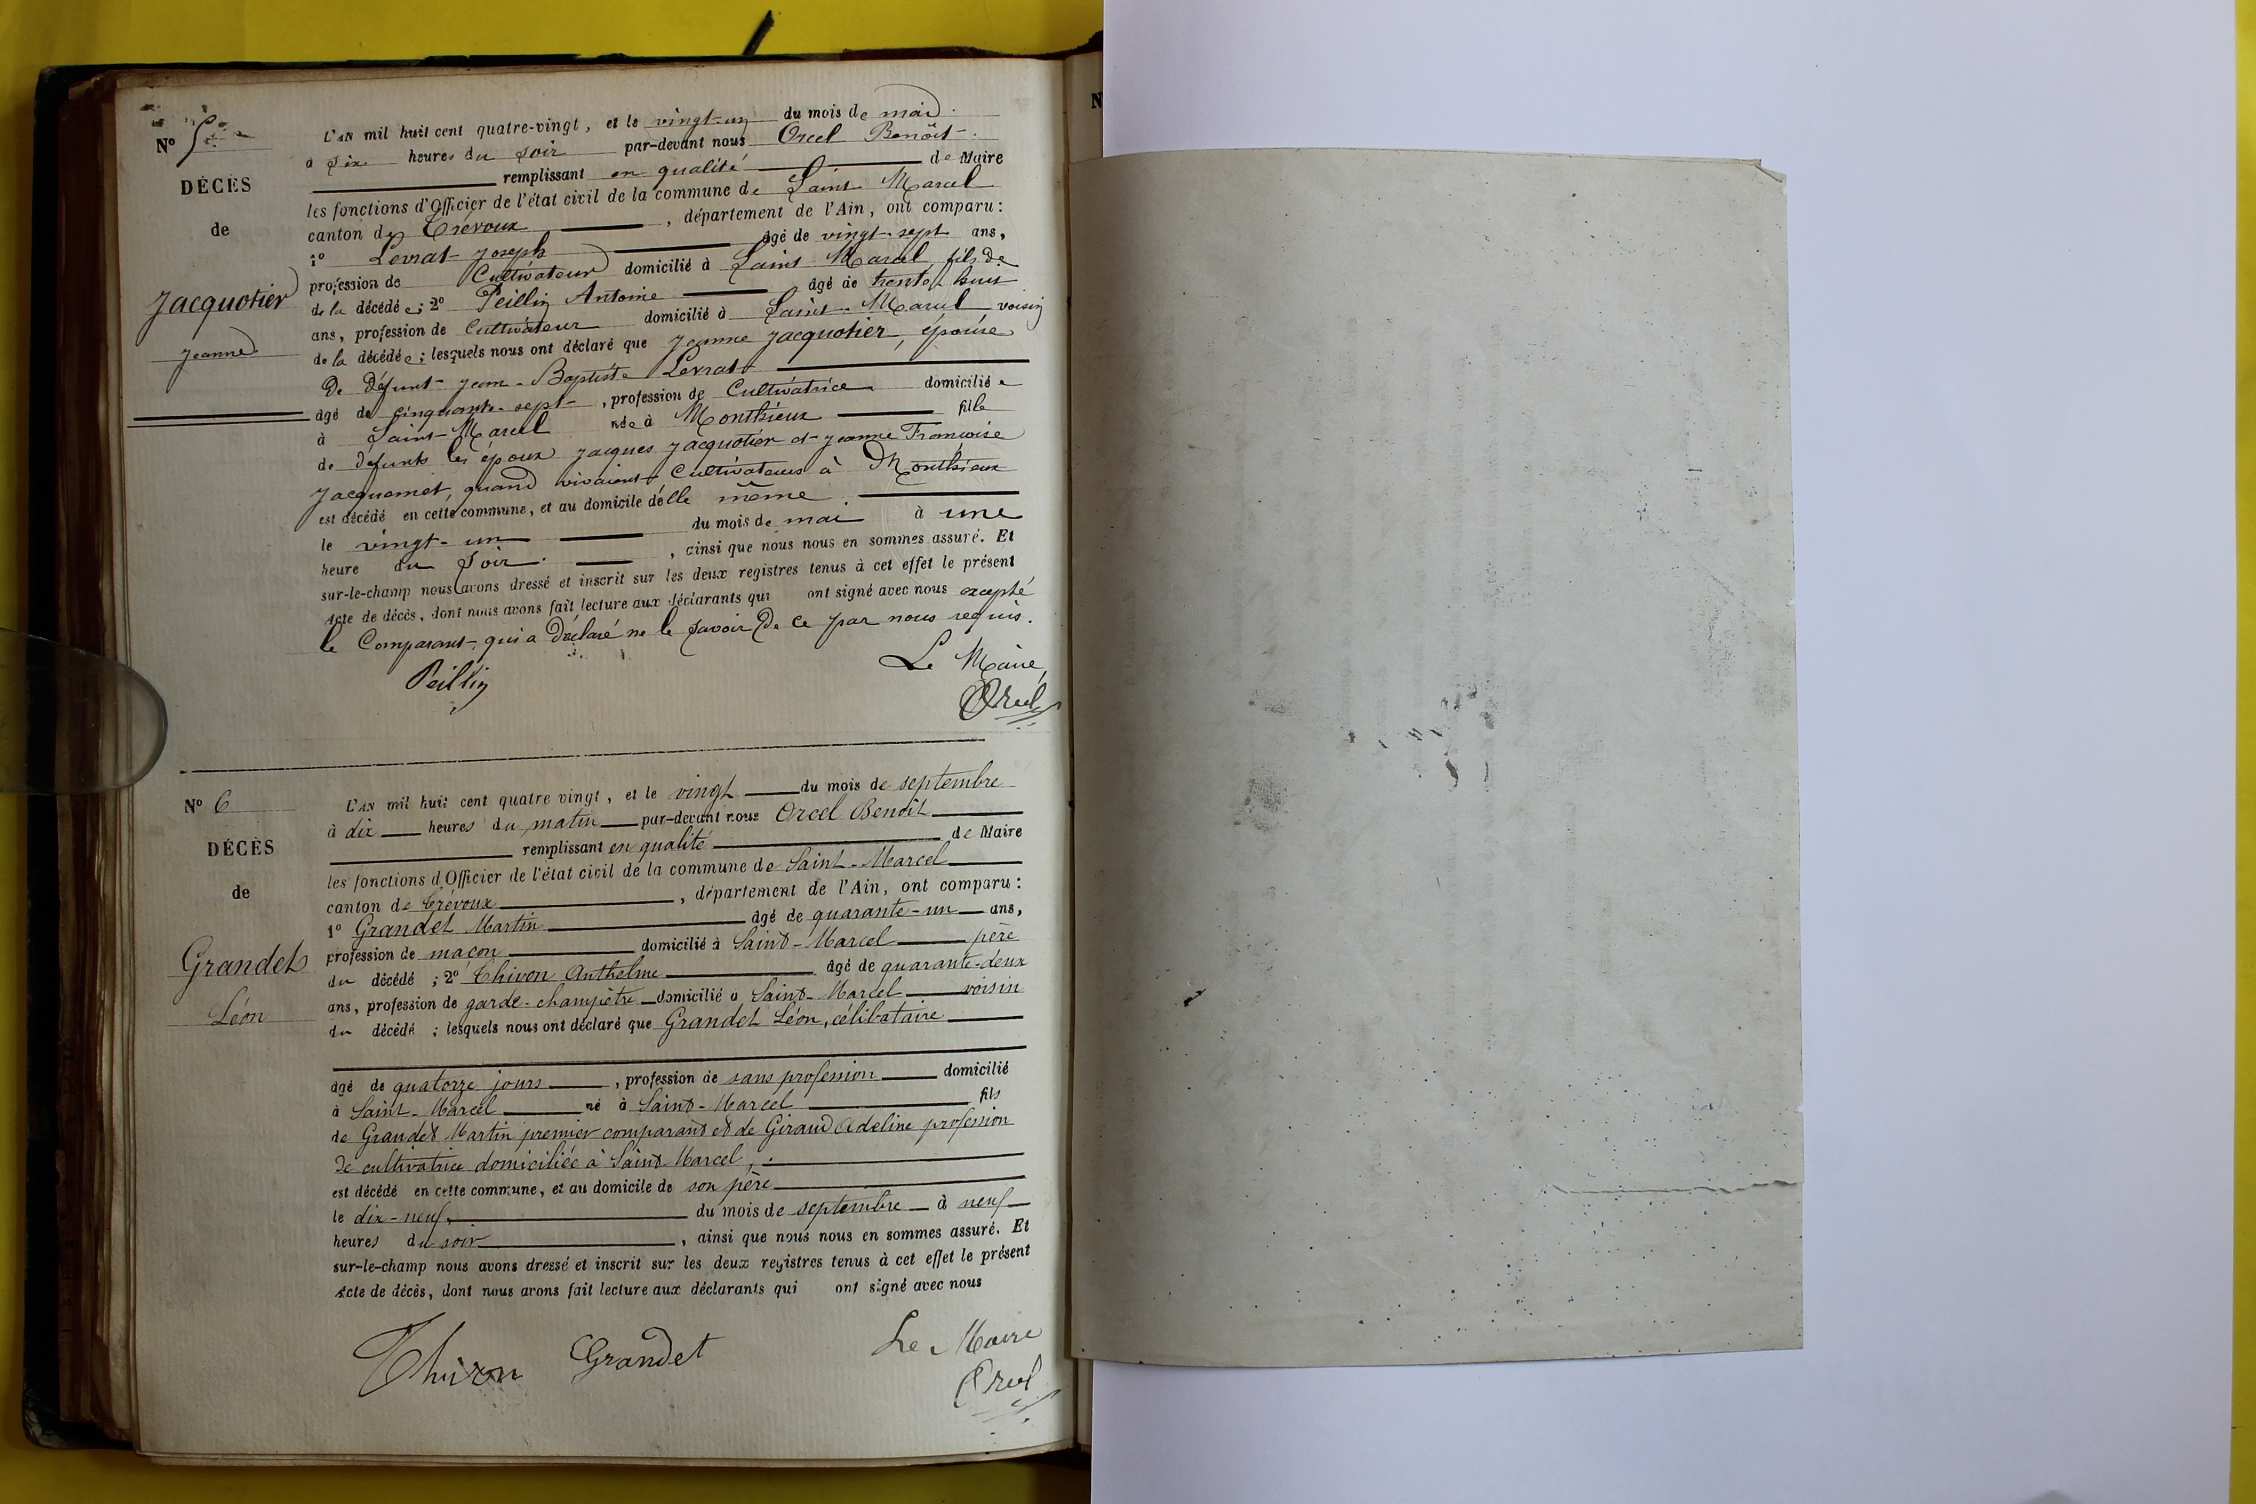 N° 5
DÉCÈS
de
Jacquotier
Jeanne
L'AN mil huit cent quatre-vingt, et le vingt-un du mois de mai
à six heures du soir par-devant nous Orcel Benoît
remplissant en qualité de Maire
les fonctions d'Officier de l'état civil de la commune de Saint Marcel
canton de Trévoux, département de l'Ain, ont comparu :
1° Levrat Joseph âgé de vingt-sept ans,
profession de Cultivateur domicilié à Saint Marcel fils de
de la décédée; 2° Peillin Antoine âgé de trente huit
ans, profession de Cultivateur domicilié à Saint-Marcel voisin
de la décédée; lesquels nous ont déclaré que Jeanne Jacquotier, épouse
De défunt Jean-Baptiste Levrat
âgé de cinquante-sept, profession de Cultivatrice domiciliée
à Saint-Marcel née à Monthieux fille
de défunts les époux Jacques Jacquotier et Jeanne Françoise
Jacquemet, quand vivaient Cultivateurs à Monthieux
est décédé en cette commune, et au domicile d'elle même
le vingt-un du mois de mai à une
heure du soir, ainsi que nous nous en sommes assuré. Et
sur-le-champ nous avons dressé et inscrit sur les deux registres tenus à cet effet le présent
Acte de décès, dont nous avons fait lecture aux déclarants qui ont signé avec nous excepté
le Comparant qui a déclaré ne le savoir De ce par nous requis.
Peillin
Le Maire,
Orcel
N° 6
DÉCÈS
de
Grandet
Léon
L'AN mil huit cent quatre vingt, et le vingt du mois de septembre
à dix heures du matin par-devant nous Orcel Benoît
remplissant en qualité de Maire
les fonctions d'Officier de l'état civil de la commune de Saint-Marcel
canton de Trévoux, département de l'Ain, ont comparu :
1° Grandet Martin âgé de quarante-un ans,
profession de maçon domicilié à Saint-Marcel père
du décédé; 2° Thivon Anthelme âgé de quarante-deux
ans, profession de garde-champêtre domicilié à Saint-Marcel voisin
du décédé; lesquels nous ont déclaré que Grandet Léon, célibataire
âgé de quatorze jours, profession de sans profession domicilié
à Saint-Marcel né à Saint-Marcel fils
de Grandet Martin premier comparant et de Giraud Adeline profession
de cultivatrice domiciliée à Saint Marcel,
est décédé en cette commune, et au domicile de son père
le dix-neuf, du mois de septembre à neuf
heures du soir, ainsi que nous nous en sommes assuré. Et
sur-le-champ nous avons dressé et inscrit sur les deux registres tenus à cet effet le présent
Acte de décès, dont nous avons fait lecture aux déclarants qui ont signé avec nous
Thivon Grandet
Le Maire
Orcel
N